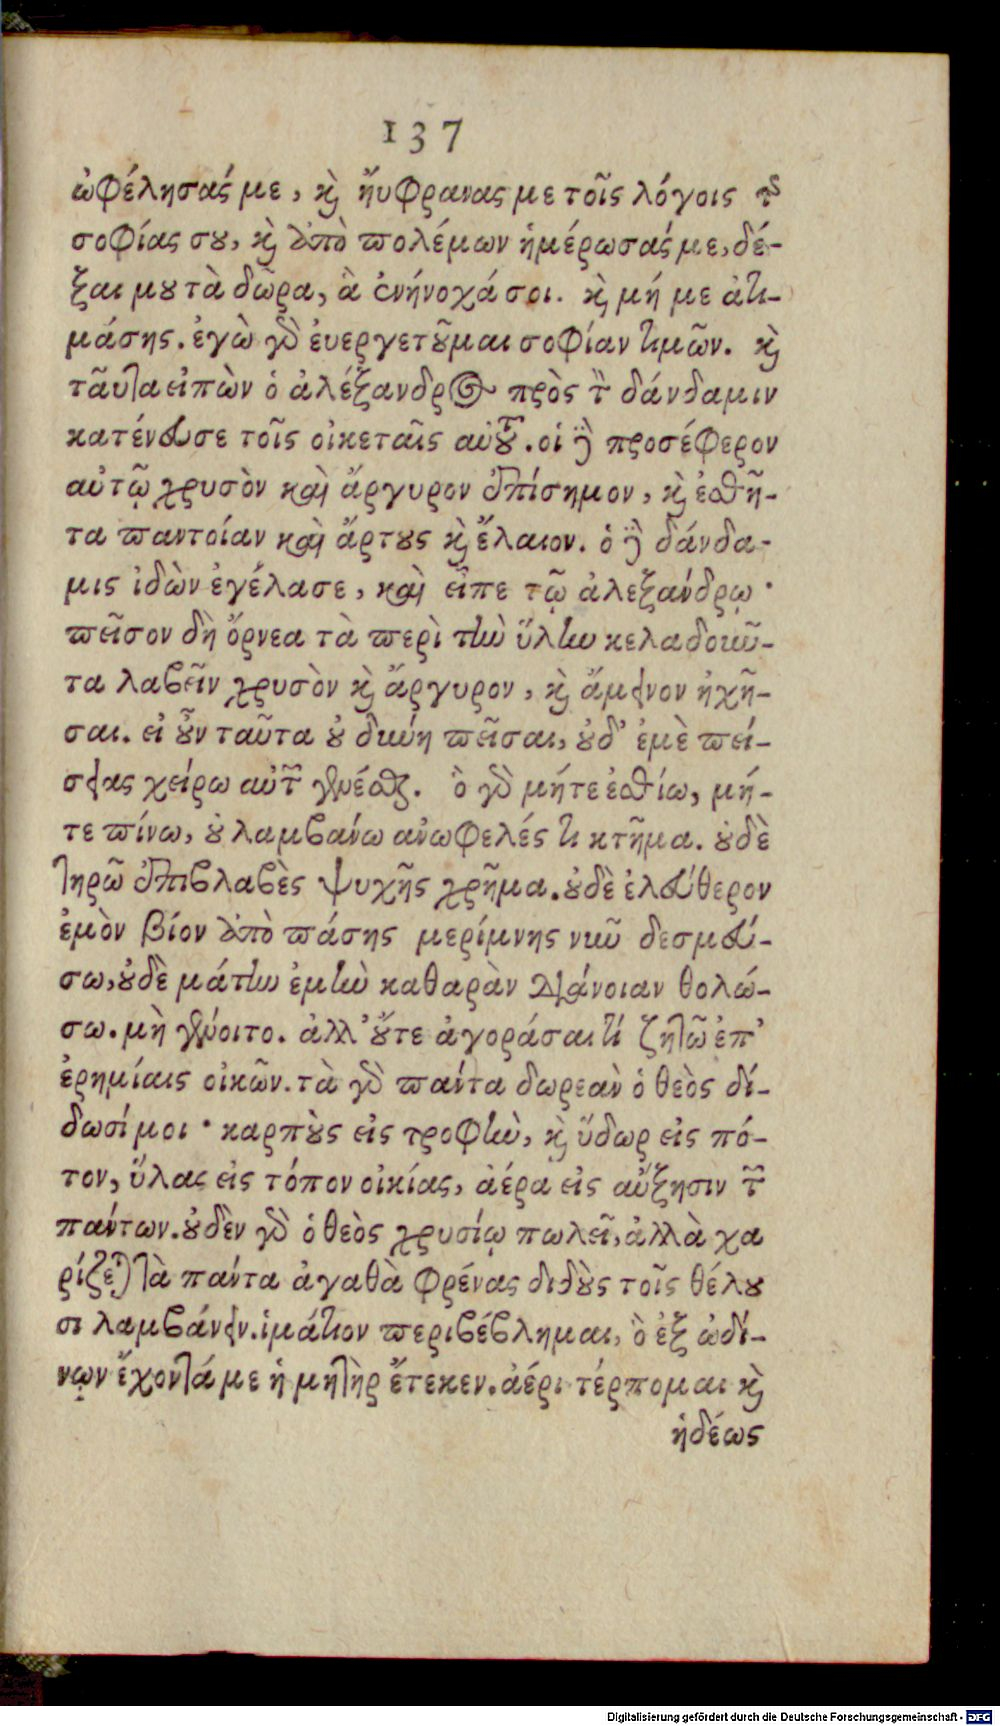 137
ὠφέλησάς με, καὶ ηὔφρανας με τοῖς λόγοις τῆς
σοφίας σου, καὶ ἀπὸ πολέμων ἡμέρωσάς με, δέ-
ξαι μου τὰ δῶρα, ἃ ἐνήνοχά σοι. καὶ μή με ἀτι-
μάσῃς. ἐγὼ γὸ ἐυεργετοῦμαι σοφίαν τιμῶν. καὶ
ταῦτα εἰπὼν ὁ ἀλέξανδρος πρὸς τὸν δάνδαμιν
κατένευσε τοῖς οἰκεταῖς αὐτοῦ. οἱ δὲ προσέφερον
αὐτῷ χρυσὸν καὶ ἄργυρον ἐπίσημον, καὶ ἐσθῆ-
τα παντοίαν καὶ ἄρτους καὶ ἔλαιον. ὁ δὲ δάνδα-
μις ἰδὼν ἐγέλασε, καὶ εἶπε τῷ ἀλεξάνδρῳ ·
πεῖσον δὴ ὄρνεα τὰ περὶ τὴν ὕλην κελαδοῦν-
τα λαβεῖν χρυσὸν καὶ ἄργυρον, καὶ ἄμεινον ἠχῆ-
σαι. εἰ οὖν ταῦτα οὐ δύνῃ πεῖσαι, οὐδ' ἐμὲ πεί-
σεις χείρω αὐτῶν γενέσθαι. ὃ γὸ μήτε ἐσθίω, μή-
τε πίνω, οὐ λαμβάνω ἀνωφελές τι κτῆμα. οὐδὲ
τηρῶ ἐπιβλαβὲς ψυχῆς χρῆμα. οὐδὲ ἐλεύθερον
ἐμὸν βίον ἀπὸ πάσης μερίμνης νῦν δεσμεύ-
σω, οὐδὲ μάτην ἐμὴν καθαρὰν διάνοιαν θολώ-
σω. μὴ γένοιτο. ἀλλ' οὔτε ἀγοράσαι τί ζητῶ ἐπ'
ἐρημίαις οἰκῶν. τὰ γὸ πάντα δωρεὰν ὁ θεὸς δί-
δωσί μοι · καρποὺς εἰς τροφὴν, καὶ ὕδωρ εἰς πό-
τον, ὕλας εἰς τόπον οἰκίας, ἀέρα εἰς αὔξησιν τῶν
πάντων. οὐδὲν γὸ ὁ θεὸς χρυσίῳ πωλεῖ, ἀλλὰ χα
ρίζεται τὰ πάντα ἀγαθὰ φρένας διδοὺς τοῖς θέλου
σι λαμβάνειν. ἱμάτιον περιβέβλημαι, ὃ ἐξ ὠδί-
νων ἔχοντά με ἡ μητὴρ ἔτεκεν. ἀέρι τέρπομαι καὶ
ἡδέως
Digitalisierung gefördert durch die Deutsche Forschungsgemeinschaft - DFG